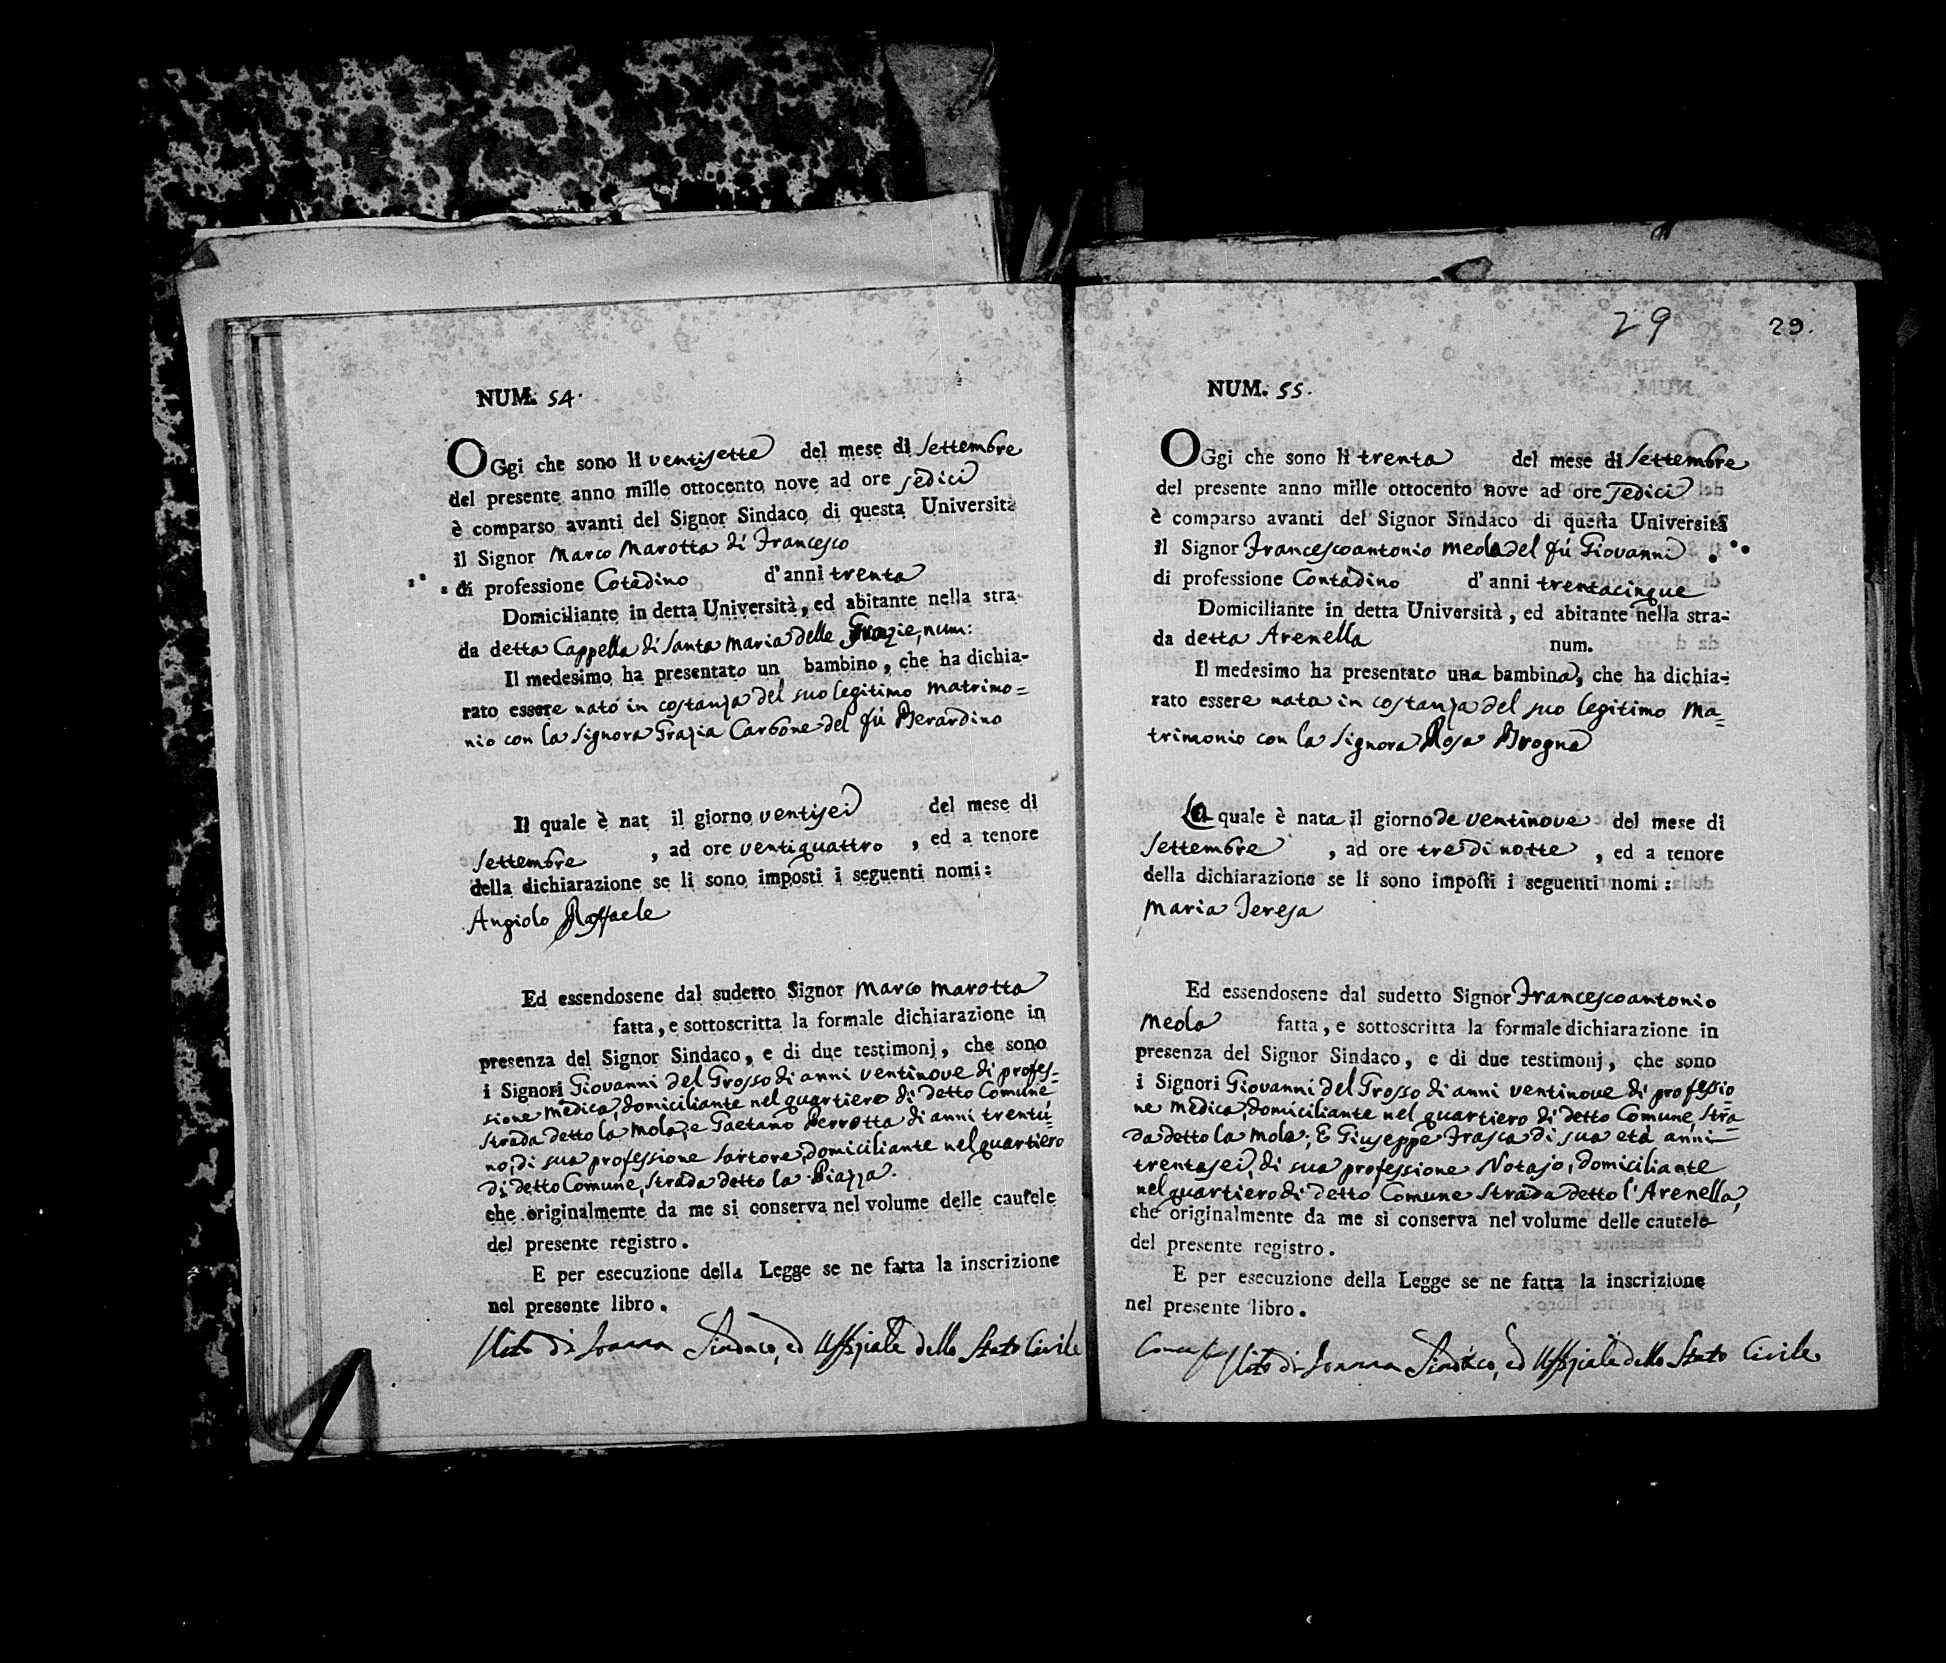 NUM. 54.
OGgi che sono li ventisette del mese di settembre
del presente anno mille ottocento nove ad ore sedici
è comparso avanti del Signor Sindaco di questa Università
il Signor Marco Marotta di Francesco
di professione Cotadino d'anni trenta
Domiciliante in detta Università, ed abitante nella stra-
da detta Cappella di Santa Maria delle Grazie, num:
Il medesimo ha presentato un bambino, che ha dichia-
rato essere nato in costanza del suo legitimo matrimo=
nio con la Signora Grazia Carbone del fú Berardino
Il quale è nat il giorno ventisei del mese di
settembre , ad ore ventiquattro , ed a tenore
della dichiarazione se li sono imposti i seguenti nomi:
Angiolo Raffaele
Ed essendosene dal sudetto Signor Marco Marotta
fatta, e sottoscritta la formale dichiarazione in
presenza del Signor Sindaco, e di due testimonj, che sono
i Signori Giovanni del Grosso di anni ventinove di profes=
sione medica, domiciliante nel quartiero di detto Comune
strada detto la Mola, e Gaetano Perrotta di anni trentu=
no, di sua professione sartore, domiciliante nel quartiero
di detto Comune, strada detto la Piazza.
che originalmente da me si conserva nel volume delle cautele
del presente registro.
E per esecuzione della Legge se ne fatta la inscrizione
nel presente libro.
Vito di Sindaco, ed Uffiziale dello Stato Civile
29 29.
NUM. 55.
OGgi che sono li trenta del mese di Settembre
del presente anno mille ottocento nove ad ore sedici
è comparso avanti del Signor Sindaco di questa Università
il Signor Francescoantonio Meola del fú Giovanni
di professione Contadino d'anni trentacinque
Domiciliante in detta Università, ed abitante nella stra-
da detta Arenella num.
Il medesimo ha presentato una bambina, che ha dichia-
rato essere nata in costanza del suo legitimo Ma=
trimonio con la Signora Rosa Brogna
La quale è nata il giorno de ventinove del mese di
Settembre , ad ore tre di notte , ed a tenore
della dichiarazione se li sono imposti i seguenti nomi:
Maria Teresa
Ed essendosene dal sudetto Signor Francescoantonio
Meola fatta, e sottoscritta la formale dichiarazione in
presenza del Signor Sindaco, e di due testimonj, che sono
i Signori Giovanni del Grosso di anni ventinove di professio
ne medica, domiciliante nel quartiero di detto Comune, stra=
da detto la Mola; E Giuseppe Frasca di sua età anni
trentasei, di sua professione Notajo, domiciliante
nel quartiero di detto Comune strada detto l'Arenella,
che originalmente da me si conserva nel volume delle cautele
del presente registro.
E per esecuzione della Legge se ne fatta la inscrizione
nel presente libro.
Vito di Sindaco, ed Uffiziale dello Stato Civile